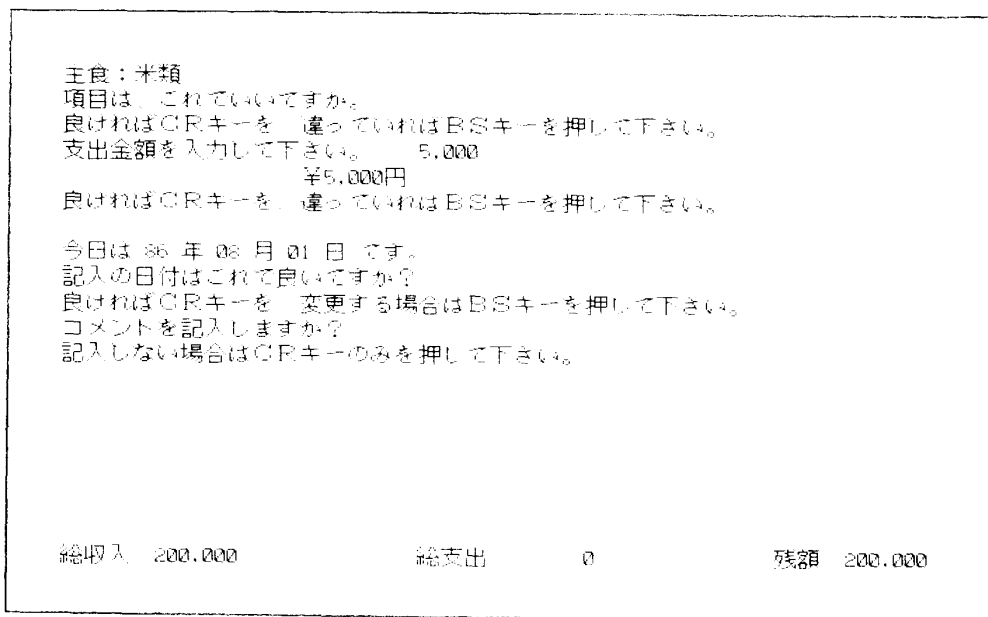 主食：米類
項目は、これでいいですか。
良ければCRキーを、違っていればBSキーを押して下さい。
支出金額を入力して下さい。 5,000
¥5,000円
良ければCRキーを、違っていればBSキーを押して下さい。
今日は 86 年 08 月 01 日 です。
記入の日付はこれで良いですか？
良ければCRキーを、変更する場合はBSキーを押して下さい。
コメントを記入しますか？
記入しない場合はCRキーのみを押して下さい。
総収入 200,000 総支出 0 残額 200,000